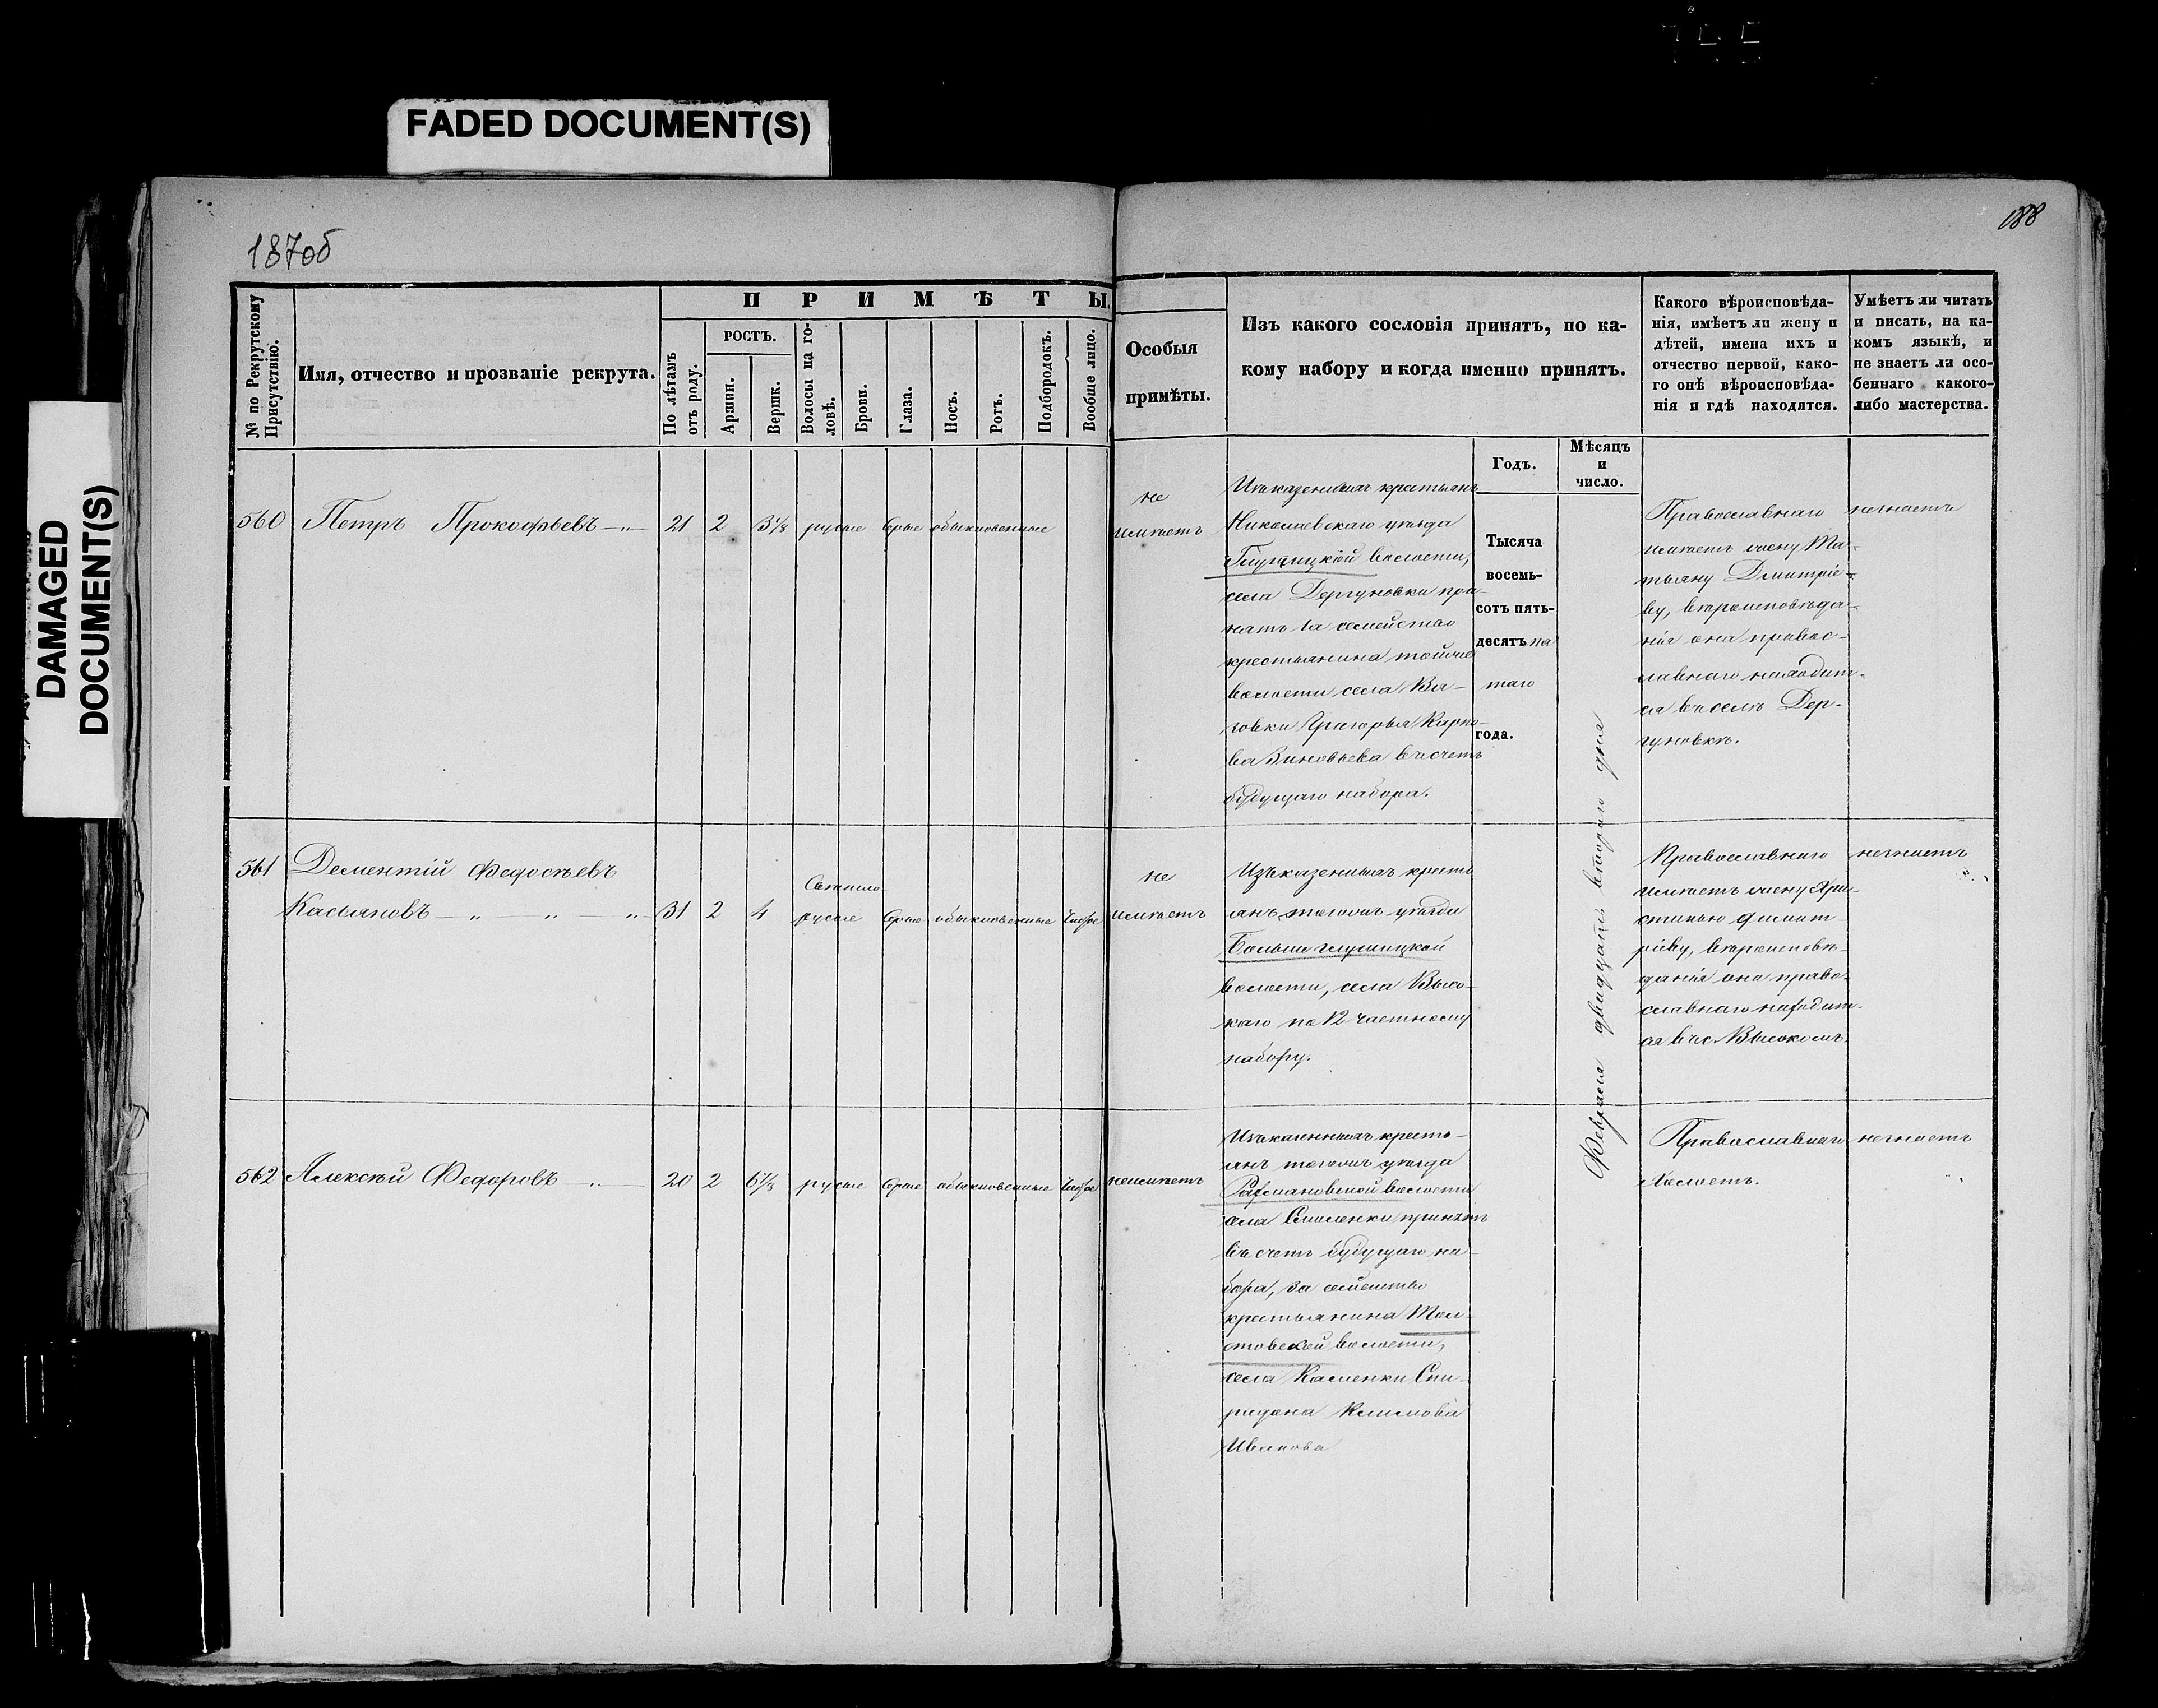 FADED DOCUMENT(S)
DAMAGED
DOCUMENT(S)
187об
188
№ по Рекрутскому Присутствію.
Имя, отчество и прозваніе рекрута.
ПРИМѢТЫ.
По лѣтамъ отъ роду.
РОСТЪ.
Аршин.
Вершк.
Волосы на головѣ.
Брови.
Глаза.
Носъ.
Ротъ.
Подбородокъ.
Вообще лицо.
Особыя
примѣты.
Изъ какого сословія принятъ, по ка-
кому набору и когда именно принятъ.
Годъ.
Мѣсяцъ
и
число.
Какого вѣроисповѣда-
нія, имѣетъ ли жену и
дѣтей, имена ихъ и
отчество первой, како-
го онѣ вѣроисповѣда-
нія и гдѣ находятся.
Умѣетъ ли читать
и писать, на ка-
комъ языкѣ, и
не знаетъ ли осо-
беннаго какого-
либо мастерства.
560 Петръ Прокофьевъ 21 2 3 1/8 русые серые обыкновенные
не
имѣетъ
Изъ казенныхъ крестьянъ
Николаевскаго уѣзда
Глушицкой волости,
села Дергуновки при-
нятъ за семейство
крестьянина тойже
волости села
Григорья
Зиновьева въ счетъ
будущаго набора.
Тысяча
восемь-
сотъ пять-
десятъ пя
таго
года.
Февраля двадцать втораго дня
Православнаго
имѣетъ жену Та-
тьяну Дмитріе-
ву, вѣроисповѣда-
нія она правос-
лавнаго находит-
ся въ селѣ Дер-
гуновкѣ.
незнаетъ
561 Дементій Федосѣевъ
Касьяновъ 31 2 4
Свѣтло
русые серые обыкновенные чистое
не
имѣетъ
Изъ казенныхъ кресть
янъ тогожъ уѣзда
Больше глушицкой
волости, села Высо-
каго по 12 частному
набору.
Православнаго
имѣетъ жену Хри-
стинью Димит-
ріеву, вѣроисповѣ-
данія она право-
славнаго находит-
ся въ с Высокомъ.
незнаетъ
562 Алексѣй Федоровъ 20 2 6 1/8 русые серые обыкновенные чистое
неимѣетъ
Изъ казенныхъ кресть-
янъ тогожъ уѣзда
волости
села Смоленки принятъ
въ счетъ будущаго на-
бора, за семейство
крестьянина
волости,
села Каменки Спи-
ридона Климова
Иванова
Православнаго
Холостъ.
незнаетъ